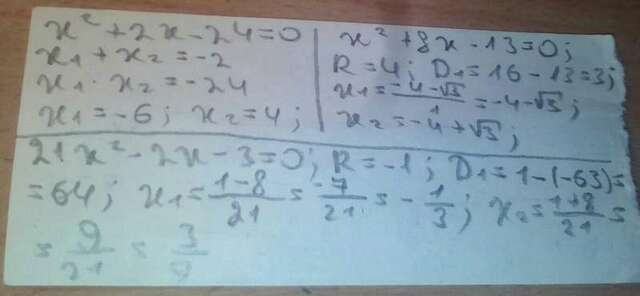 x² + 2x - 24 = 0
x₁ + x₂ = -2
x₁ · x₂ = -24
x₁ = -6; x₂ = 4;
x² + 8x - 13 = 0;
R = 4; D₁ = 16 - 13 = 3;
x₁ = (-4 - √3)/1 = -4 - √3;
x₂ = -4 + √3;
21x² - 2x - 3 = 0; R = -1; D₁ = 1 - (-63) =
= 64; x₁ = (1-8)/21 = -7/21 = -1/3; x₂ = (1+8)/21 =
= 9/21 = 3/